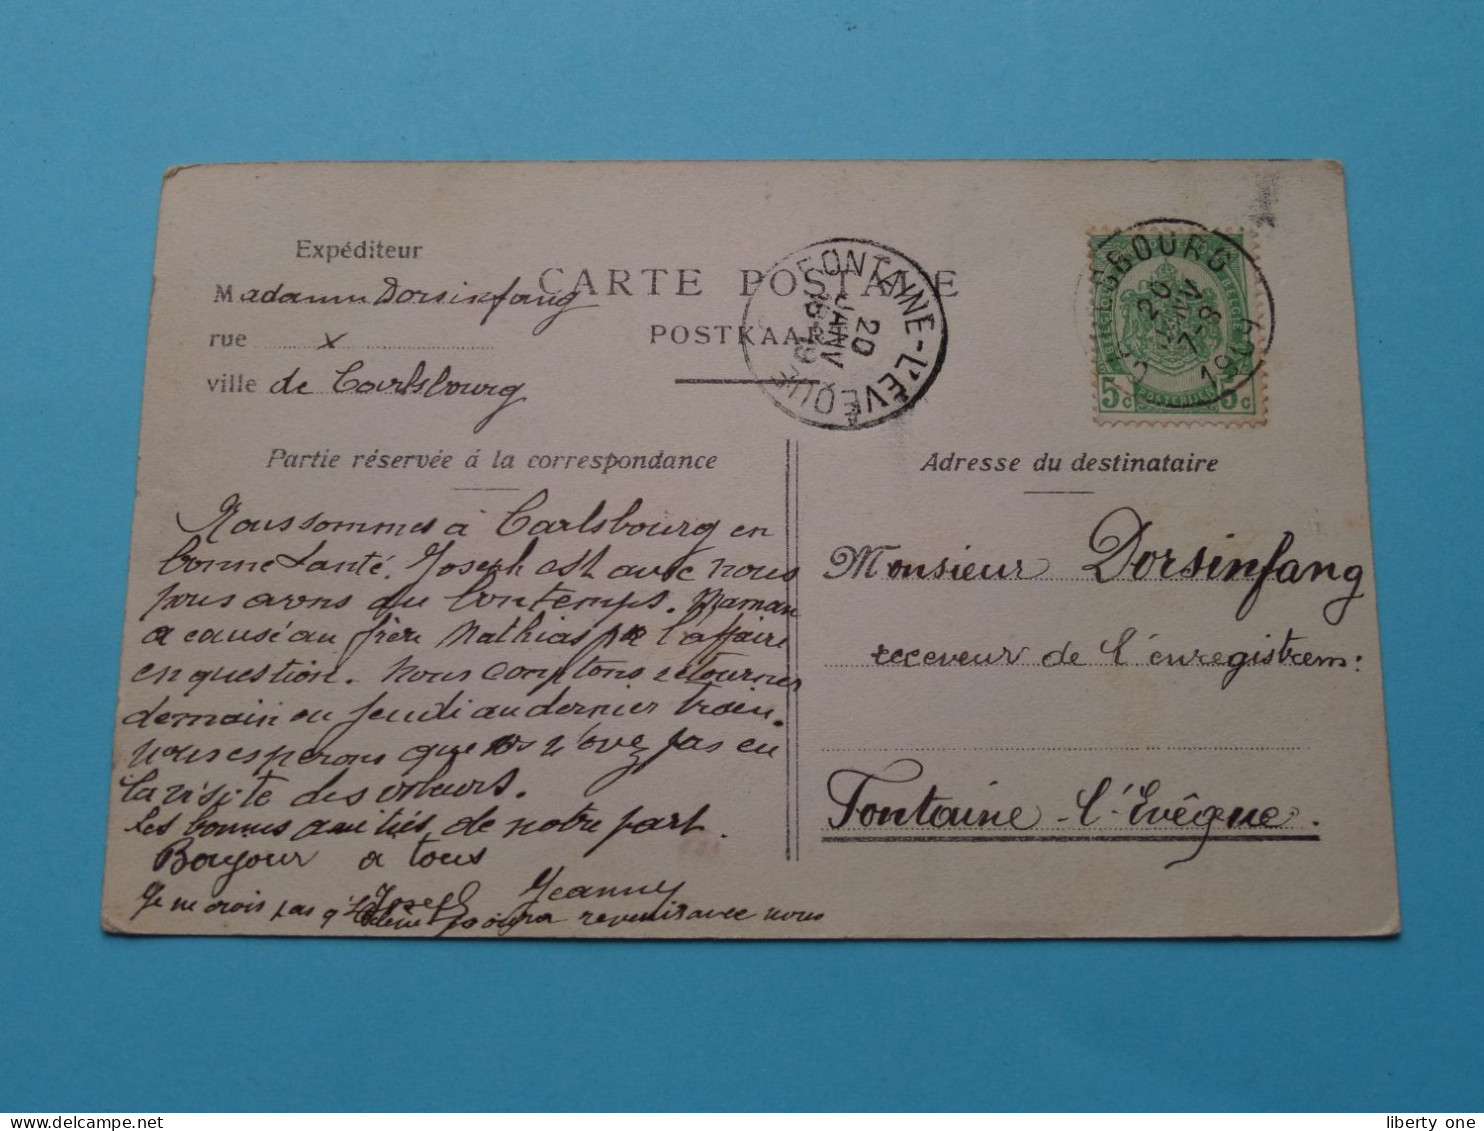 Expéditeur
Madame Dorsinfang
rue x
ville de Carlsbourg
CARTE POSTALE
POSTKAA
FONTAINE-L'ÉVÊQUE
20
JANV
18-19
SBOURG
20
JANV
7-8
1909
5c 5c
Partie réservée à la correspondance
Nous sommes à Carlsbourg en
bonne Santé. Joseph est avec nous
nous avons du bon temps. Maman
a causé au frère Mathias pr l'affaire
en question. Nous comptons retourner
demain ou jeudi au dernier train.
Nous esperons que vs n'avez pas eu
la visite des voleurs.
Les bonnes amitiés de notre part.
Bonjour a tous
Joseph Jeanny
Je ne crois pas q' pourra revenir avec nous
Adresse du destinataire
Monsieur Dorsinfang
receveur de l'enregistrem:
Fontaine-l'Evêque.
liberty one